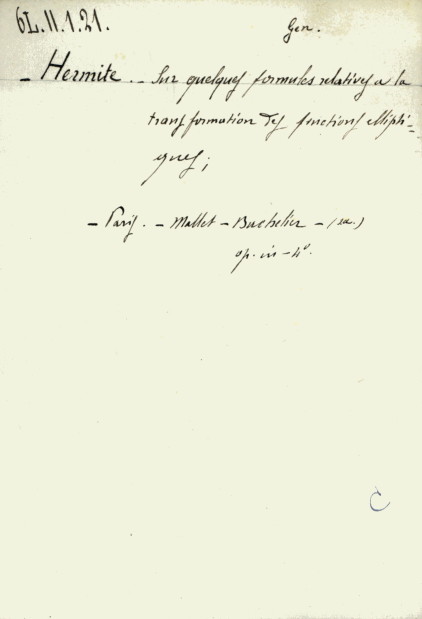 6L.II.1.21.
Gen.
- Hermite. - Sur quelques formules relatives a la
transformation des fonctions ellipti-
ques;
- Paris. - Mallet - Bachelier - (sa.)
op. in - 4°.
C